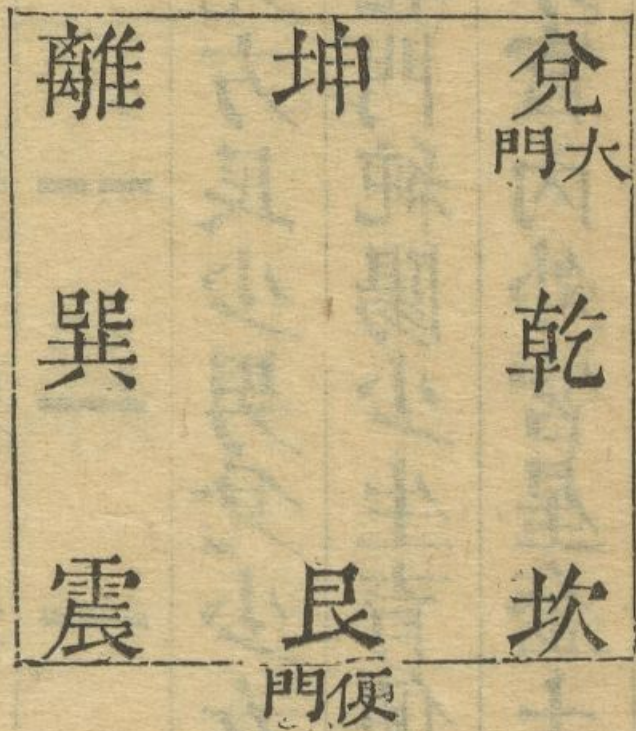 兌
大門
乾
坎
坤
艮
便門
離
巽
震